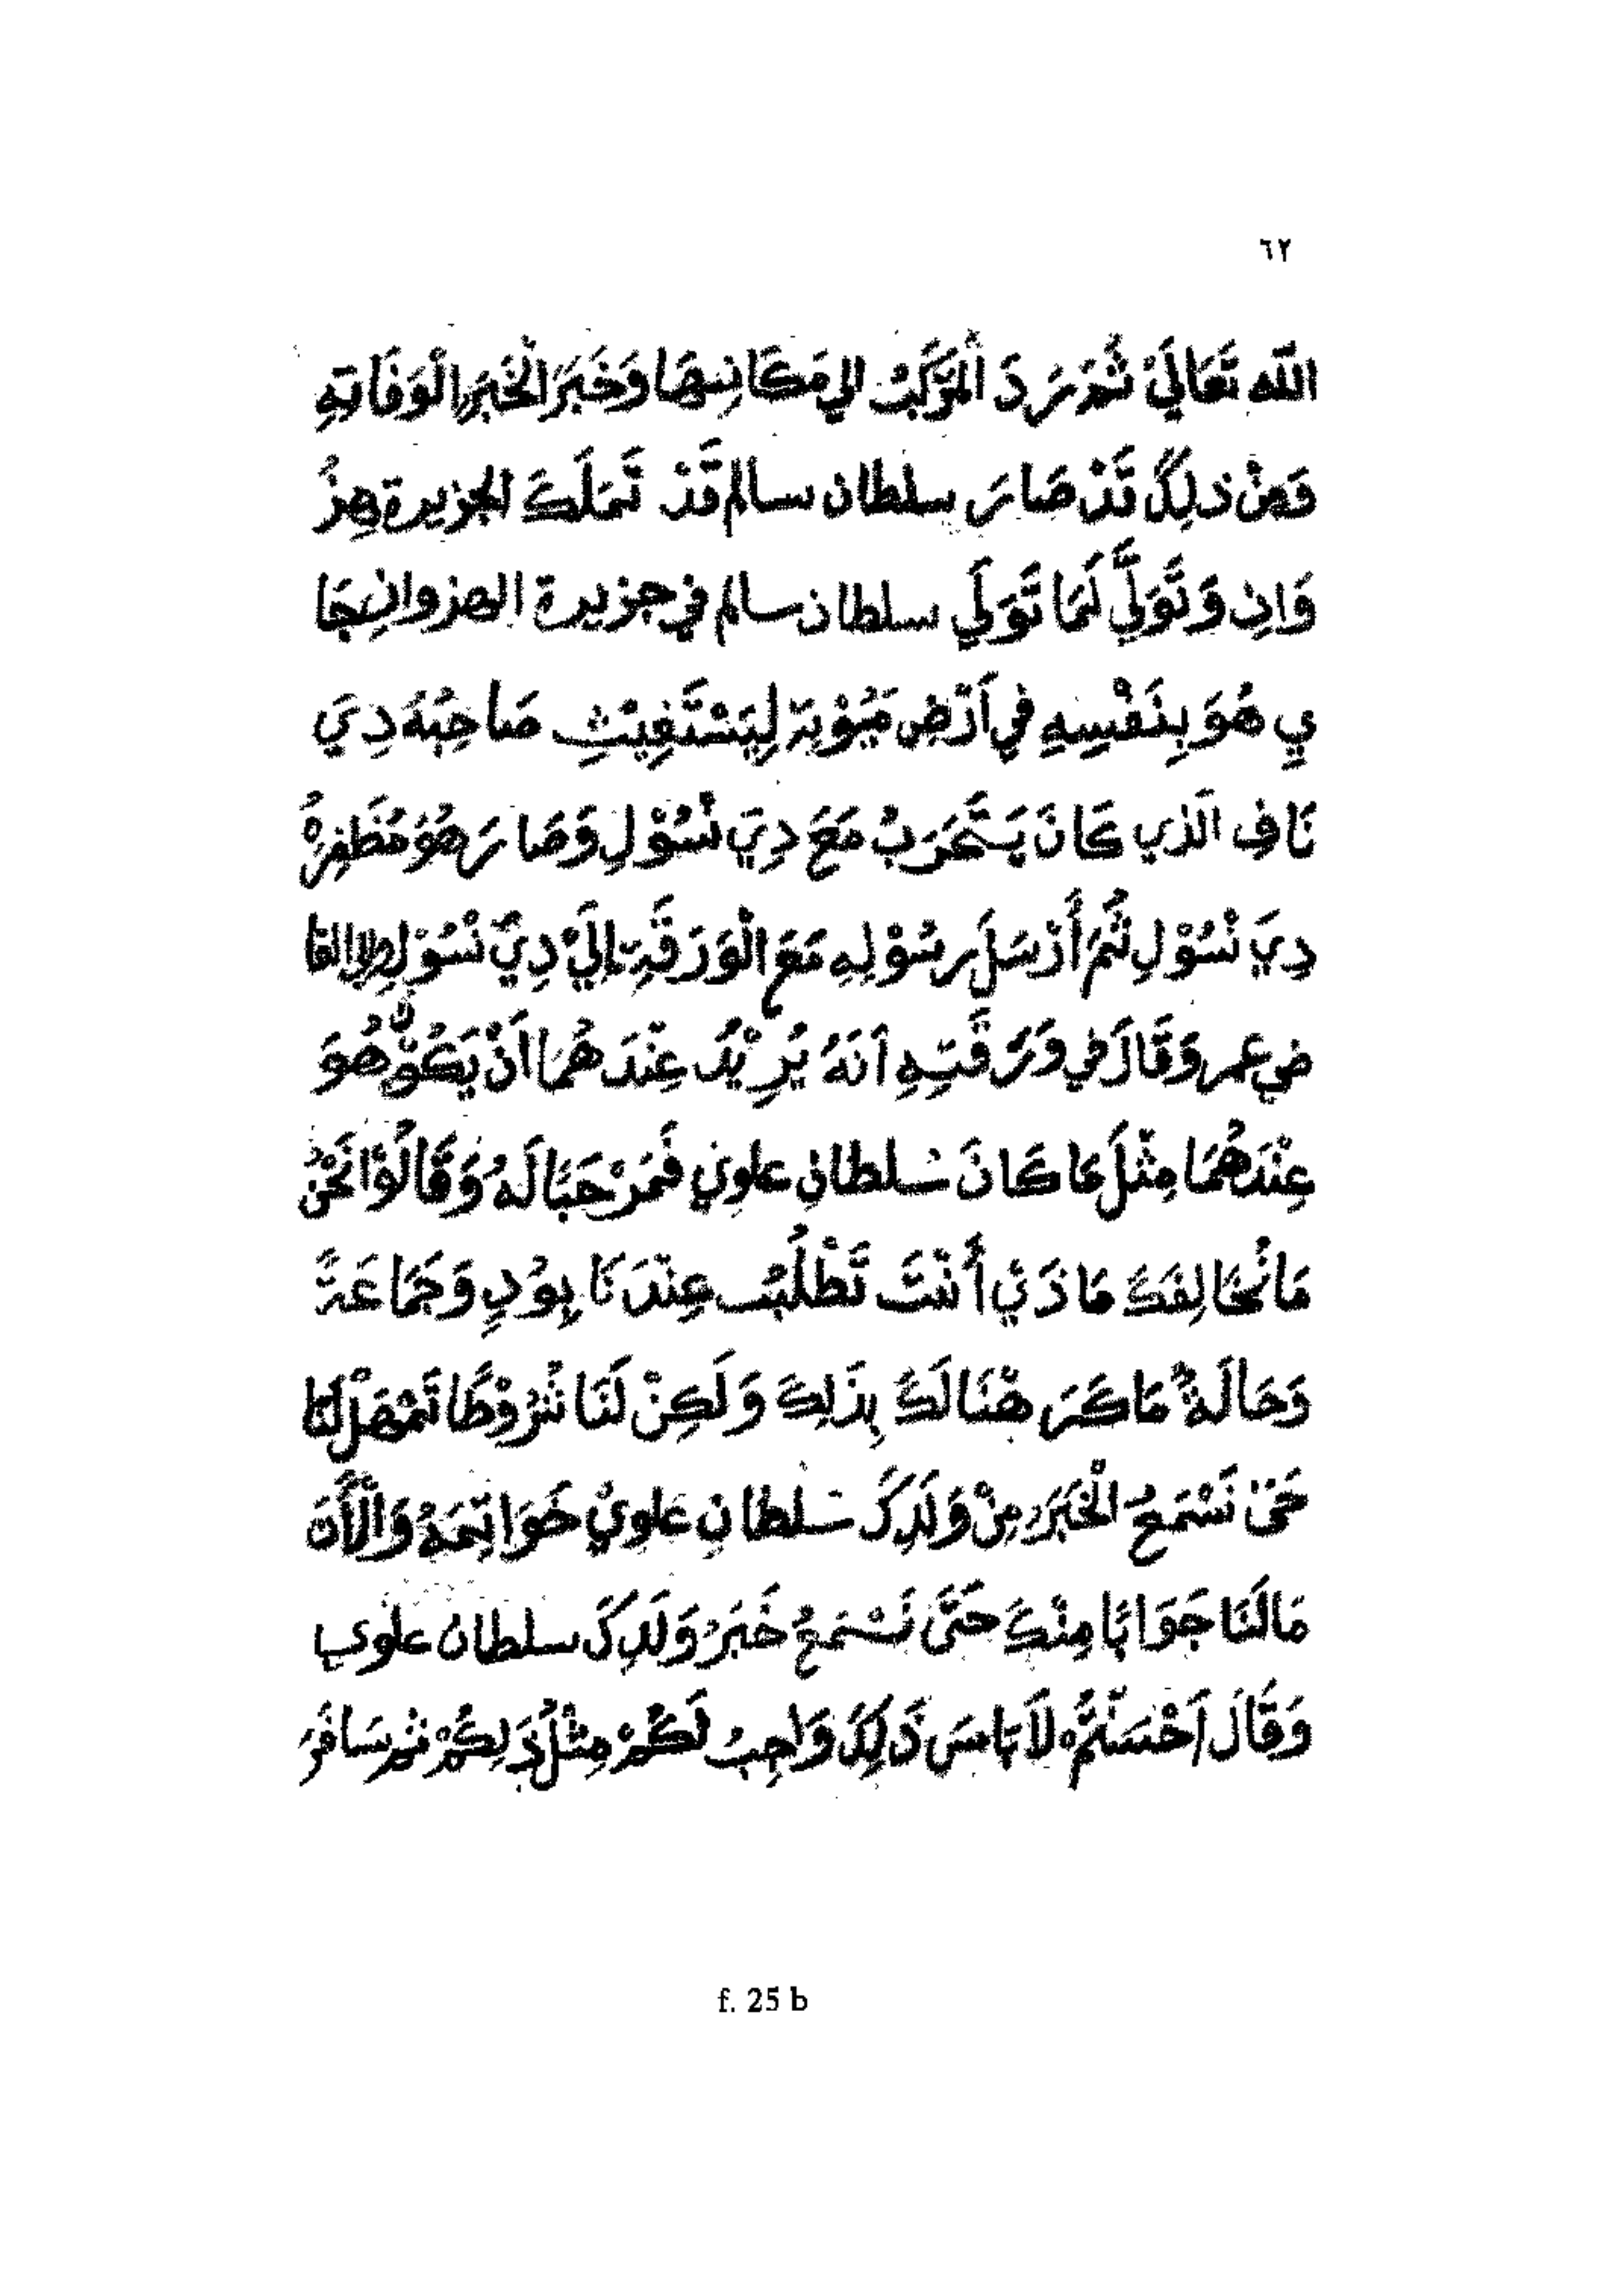 ٦٢
الله تَعَالَي ثُمَّ رَدَ الْمَرْكَبُ الي مَكَانِهَا وَخَبَرَ الْخَبَرِ الْوَفَاتِهِ
فَمِنْ ذلِكَ قَدْ صَارَ سلطان سالم قَدْ تَمَلَكَ الجزيرة هِزُ
وَانِ وَتَوَلَّي لَمَا تَوَلَي سلطان سالم في جزيرة الهزوان جَا
يِ هُوَ بِنَفْسِهِ فِي اَرْضِ مَيُوْتِهِ لِيَسْتَغِيْثِ صَاحِبُهَ دِيَ
نَافِ الَذي كَانَ يَتَحَرَبُ مَعَ دِيَ نْسُوْلِ وَصَارَ هُوَ مُظَفِرْ
دِيَ نْسُوْلِ ثُمَ أَرْسَلَ رسُوْلِهِ مَعَ الْوَرَقَةِ إِلَيْ دِيَ نْسُوْلِ القا
ضي عمر وَقَالَ فِي وَرَقَتِهِ اَنَهُ يُرِيْدُ عِنْدَهُمَا اَنْ يَكُوْنَ هُوَ
عِنْدَهُمَا مِثْلَ مَا كَانَ سُلطانِ علوي فَمَرْحَبًا لَهُ وَقَالُوْا نَحْنُ
مَا نُخَالِفَكَ مَا ذَيْ أَنْتَ تَطْلُبُ عِنْدَنَا بِوُدٍ وَجَمَاعَةً
وَحَالَةً مَا كَرَ هْنَا لَكَ بِذَلِكَ وَلَكِنْ لَنَا شُرُوْطًا تَمْهَلْ لَنَا
حَتَّ نَسْمَعُ الْخَبَرَ مِنْ وَلَدِكَ سُلطانِ علويْ خَوَاتِمَهُ وَالْأَنَ
مَا لَنَا جَوَابًا مِنْكَ حَتَّى نَسْمَعُ خَبَرُ وَلَدِكَ سلطان علوي
وَقَالَ اَحْسَنْتُمْ لَا بَاسَ ذَلِكَ وَاجِبُ لَكُمْ مِثْلُ ذَلِكُمْ ثم سَافَرَ
f. 25 b